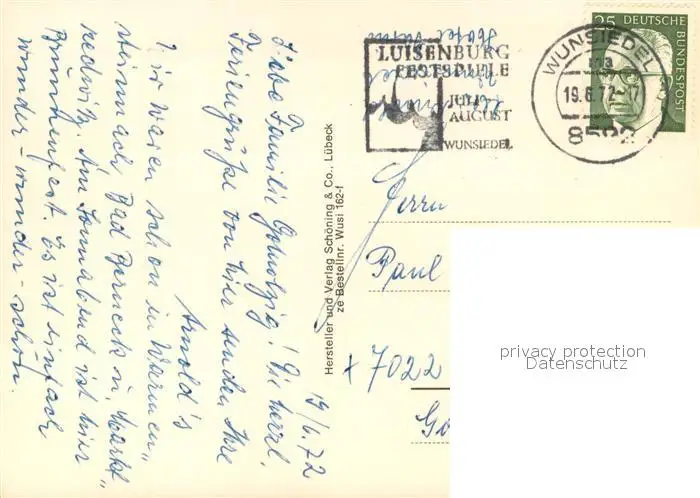 LUISENBURG
FESTSPIELE
JULI
AUGUST
WUNSIEDEL
WUNSIEDEL
19.6.72-17
8592
25 DEUTSCHE
BUNDESPOST
Herrn
Paul
+ 7022
privacy protection
Datenschutz
Hersteller und Verlag Schöning & Co., Lübeck
ze Bestellnr. Wusi 162-f
19/6.72
Liebe Familie ! Die herzl.
Feriengrüße von hier senden Ihre
Arnold's
Wir waren schon in Warmen„
steinach, Bad Berneck u. Markt„
redwitz. Am Sonnabend ist hier
Brunnenfest. Es ist einfach
wunder-wunder-schön.